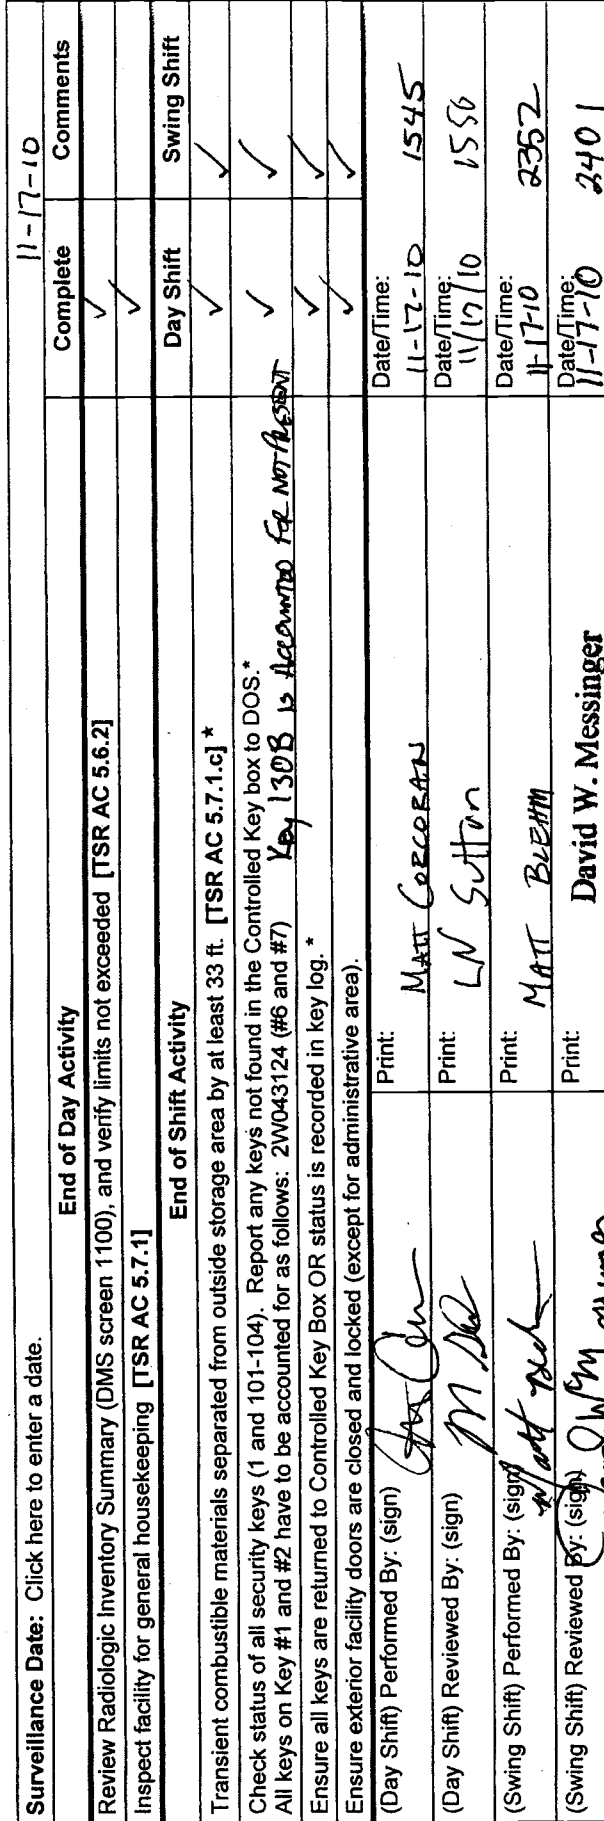 Surveillance Date: Click here to enter a date. 11-17-10
End of Day Activity Complete Comments
Review Radiologic Inventory Summary (DMS screen 1100), and verify limits not exceeded [TSR AC 5.6.2] ✓
Inspect facility for general housekeeping [TSR AC 5.7.1] ✓
End of Shift Activity Day Shift Swing Shift
Transient combustible materials separated from outside storage area by at least 33 ft. [TSR AC 5.7.1.c] * ✓ ✓
Check status of all security keys (1 and 101-104). Report any keys not found in the Controlled Key box to DOS.* ✓ ✓
All keys on Key #1 and #2 have to be accounted for as follows: 2W043124 (#6 and #7) Key 130B is Accounted For Not Present
Ensure all keys are returned to Controlled Key Box OR status is recorded in key log. * ✓ ✓
Ensure exterior facility doors are closed and locked (except for administrative area). ✓ ✓
(Day Shift) Performed By: (sign) Print: MATT CORCORAN Date/Time: 11-17-10 1545
(Day Shift) Reviewed By: (sign) Print: LN Sutton Date/Time: 11/17/10 1550
(Swing Shift) Performed By: (sign) Print: MATT BLEHM Date/Time: 11-17-10 2352
(Swing Shift) Reviewed By: (sign) Print: David W. Messinger Date/Time: 11-17-10 2401